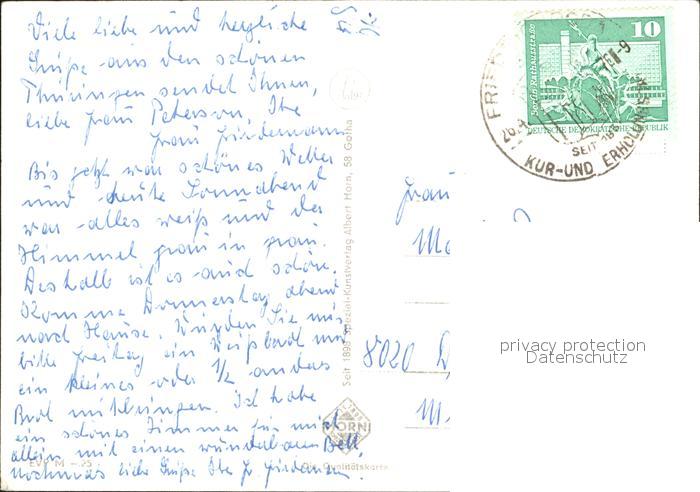 Viele liebe und herzliche
Grüße aus den schönen
Thüringen sendet Ihnen,
liebe Frau Peterson, Ihre
Frau Friedemann
Bis jetzt war schönes Wetter
und heute Sonnabend
war alles weiß und der
Himmel grau in grau.
Deshalb ist es auch schön.
Komme Donnerstag abend
nach Hause. Würden Sie mir
bitte Freitag ein Weißbrot und
ein kleines oder 1/2 anderes
Brot mitbringen. Ich habe
ein schönes Zimmer für mich
allein mit einen wunderbaren Bett,
nochmals liebe Grüße Ihre Fr. Friedemann.
EVP M -,25
Die Qualitätskarte
HORN
Seit 1898 Spezial-Kunstverlag Albert Horn, 58 Gotha
10
Berlin Rathausstraße
DEUTSCHE DEMOKRATISCHE REPUBLIK
FRIED
SEIT 18
KUR-UND ERHOLUNGS
Frau
8020 D
privacy protection
Datenschutz